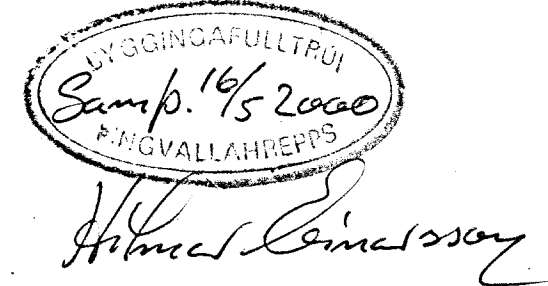 BYGGINGAFULLTRÚI
Samþ. 16/5 2000
ÞINGVALLAHREPPS
Hilmar Einarsson